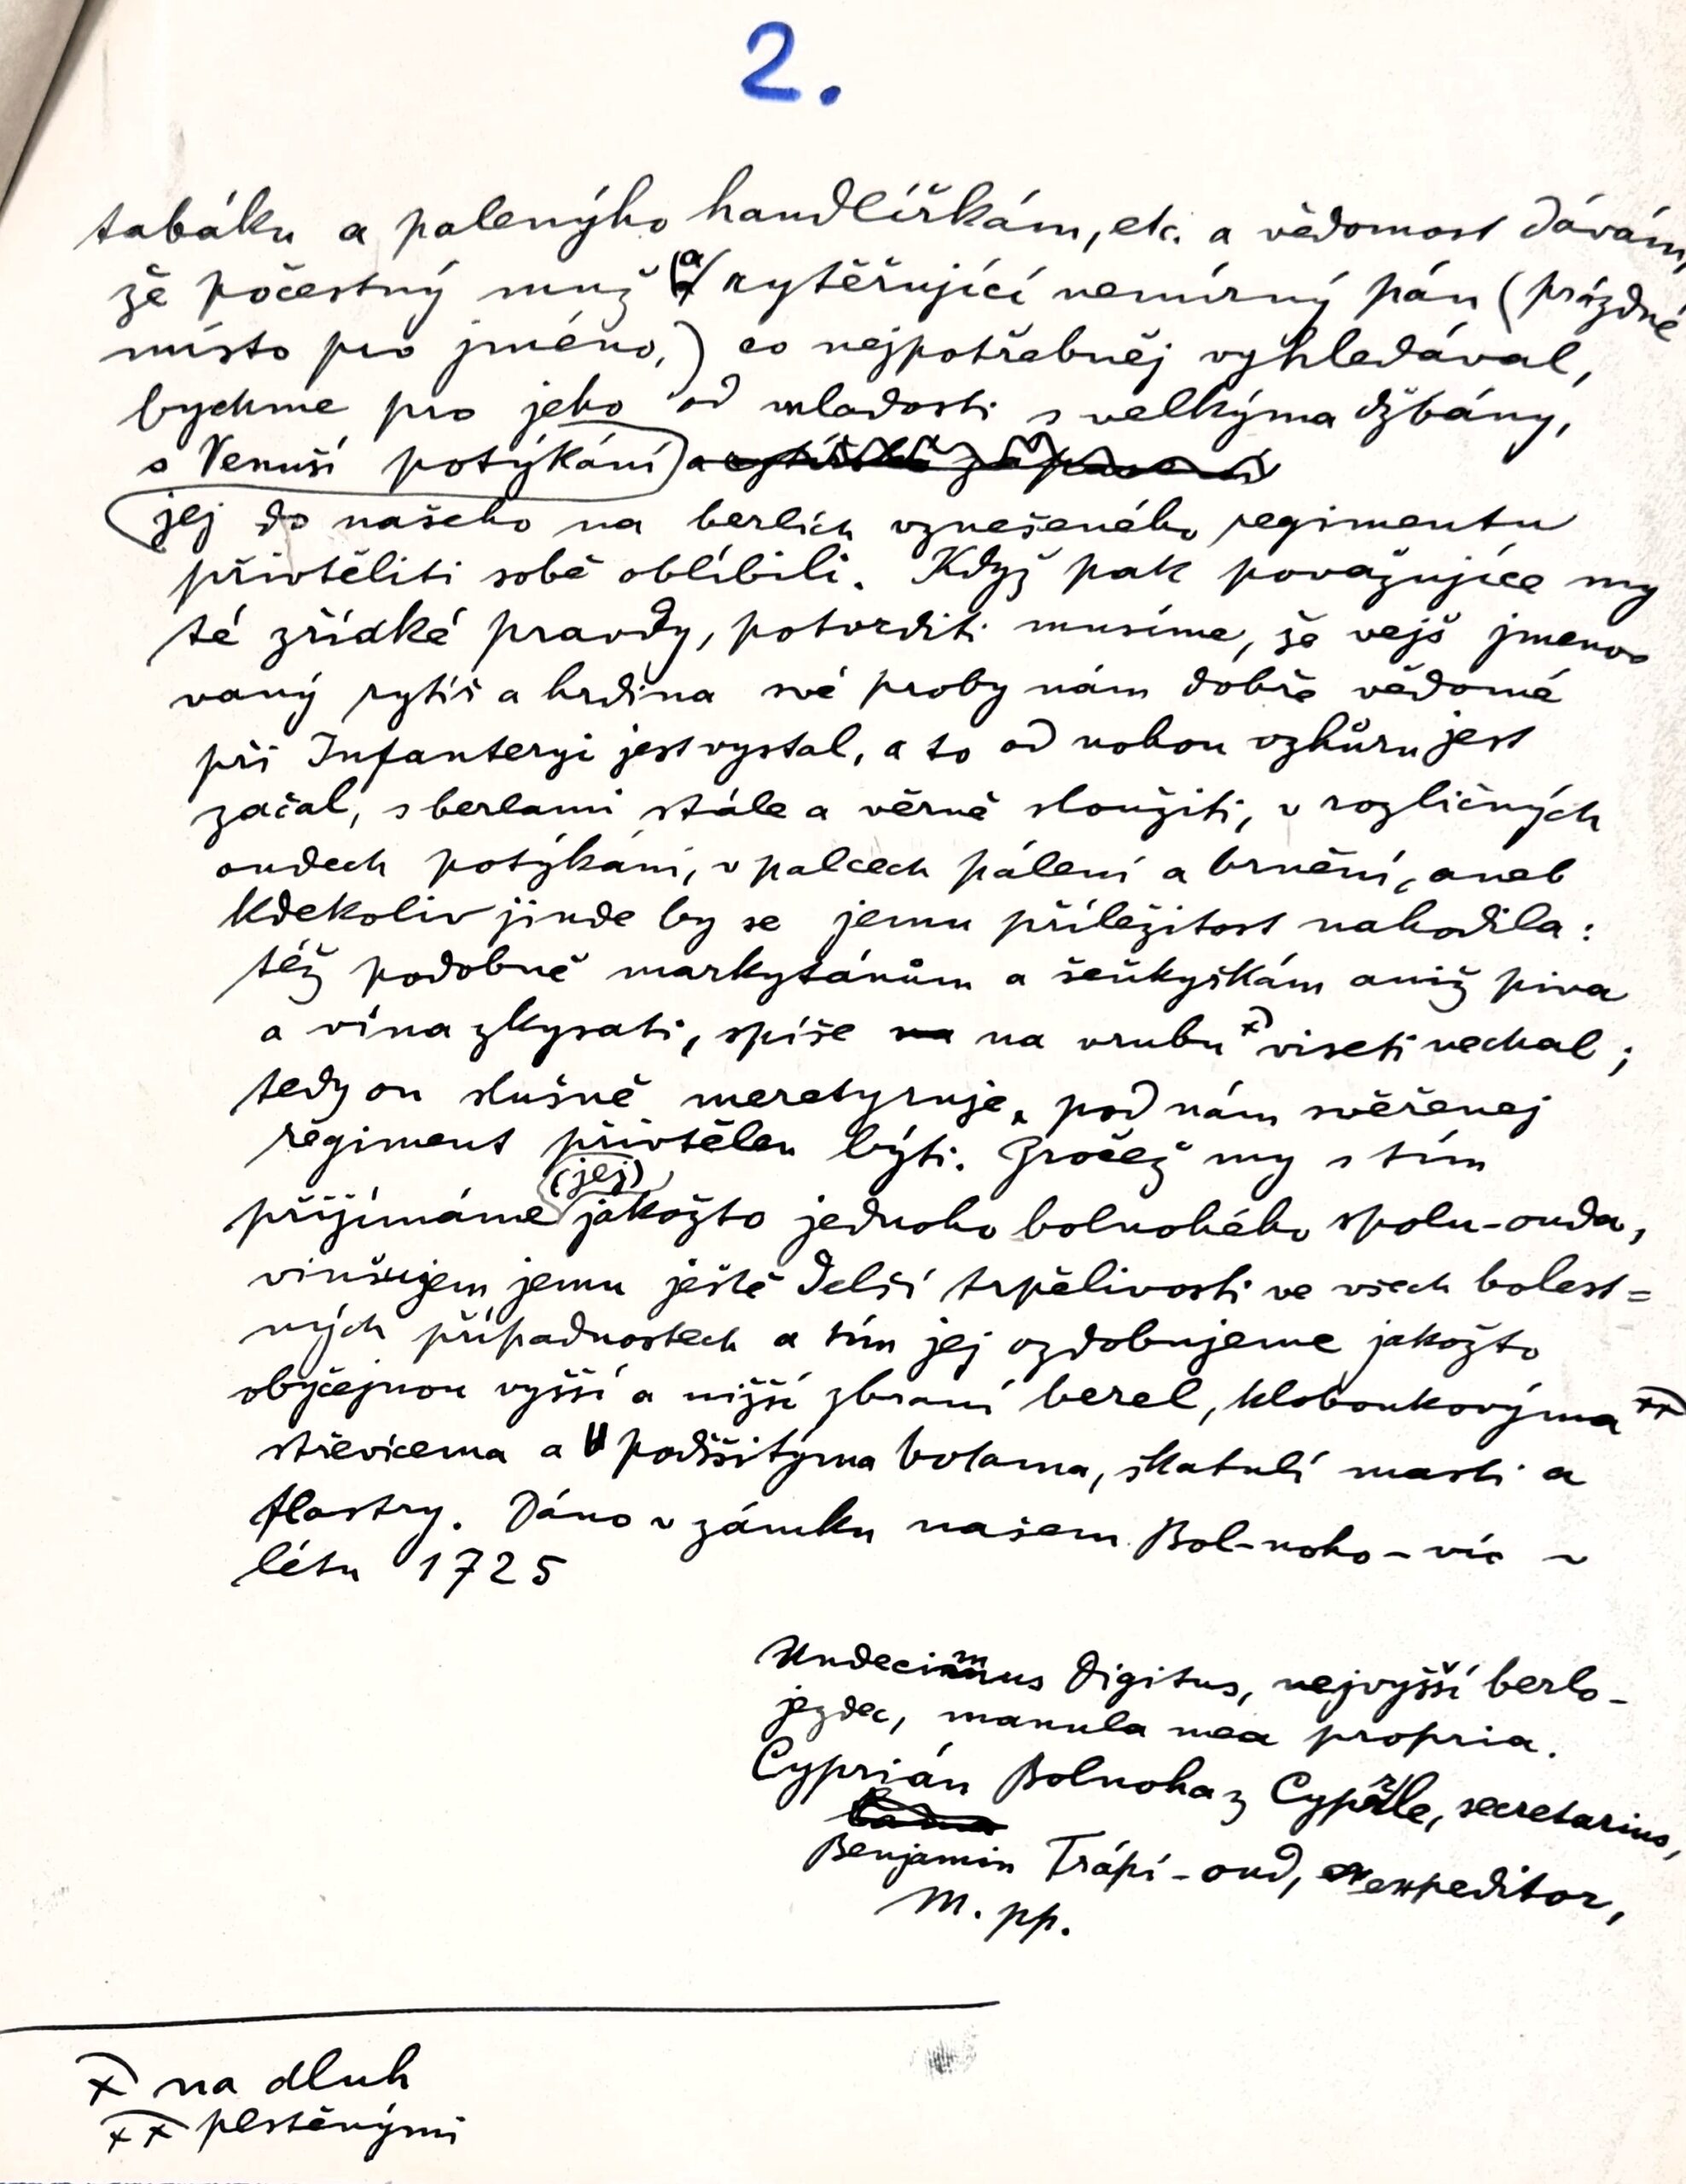 2.
tabáku a palenýho handlířkám, etc. a vědomost dávám,
že počestný muž (a) rytěřující nemírný pán (prázdné
místo pro jméno,) co nejpotřebněj vyhledával,
bychme pro jeho od mladosti s velkýma džbány,
s Venuší potýkání a
jej do našeho na berlích vznešeného regimentu
přivtěliti sobě oblíbili. Když pak považujíce my
té zřídké pravdy, potvrditi musíme, že vejš jmeno
vaný rytíř a hrdina své proby nám dobře vědomé
při Infanteryi jest vystal, a to od nohou vzhůru jest
začal, s berlami stále a věrně sloužiti, v rozličných
oudech potýkání, v palcech pálení a brnění, aneb
kdekoliv jinde by se jemu příležitost nahodila:
též podobně markytánům a šeňkýřkám aniž piva
a vína zkysati, spíše na na vrubu x) viseti nechal;
tedy on slušně meretyruje, pod nám svěřenej
regiment přivtělen býti. Pročež my s tím
(jej)
přijímáme jakožto jednoho bolnohého spolu-ouda,
vinšujem jemu ještě delší trpělivosti ve všech bolest=
ných případnostech a tím jej ozdobujeme jakožto
obyčejnou vyšší a nižší zbraní berel, kloboukovýma xx)
střevícema a podšitýma botama, škatulí masti a
flastry. Dáno v zámku našem Bol-noho-víc v
létu 1725
Undecimus Digitus, nejvyšší berlo-
jezdec, manula mea propria.
Cyprián Bolnoha z Cyprle, secretarius,
Benjamin Trápí-oud, expeditor,
M. pp.
x) na dluh
xx) plstěnými